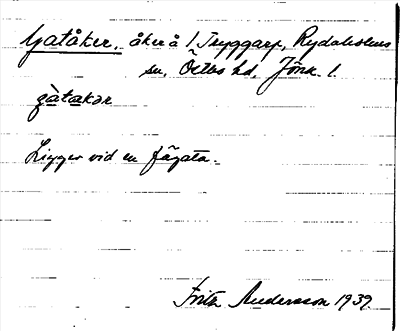 Gatåker, åker å 1 Tryggarp, Rydaholms
sn, Östbo hd, Jönk. l.
gàtakər
Ligger vid en fägata.
Frith Andersson 1939